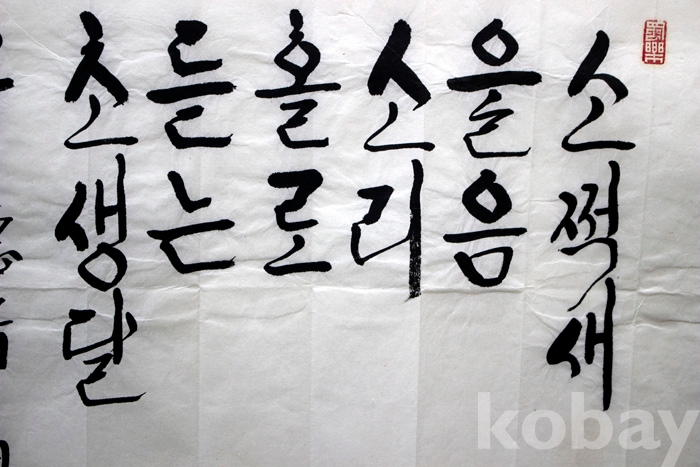 소쩍새
을음
소리
홀로
듣는
초생달
kobay